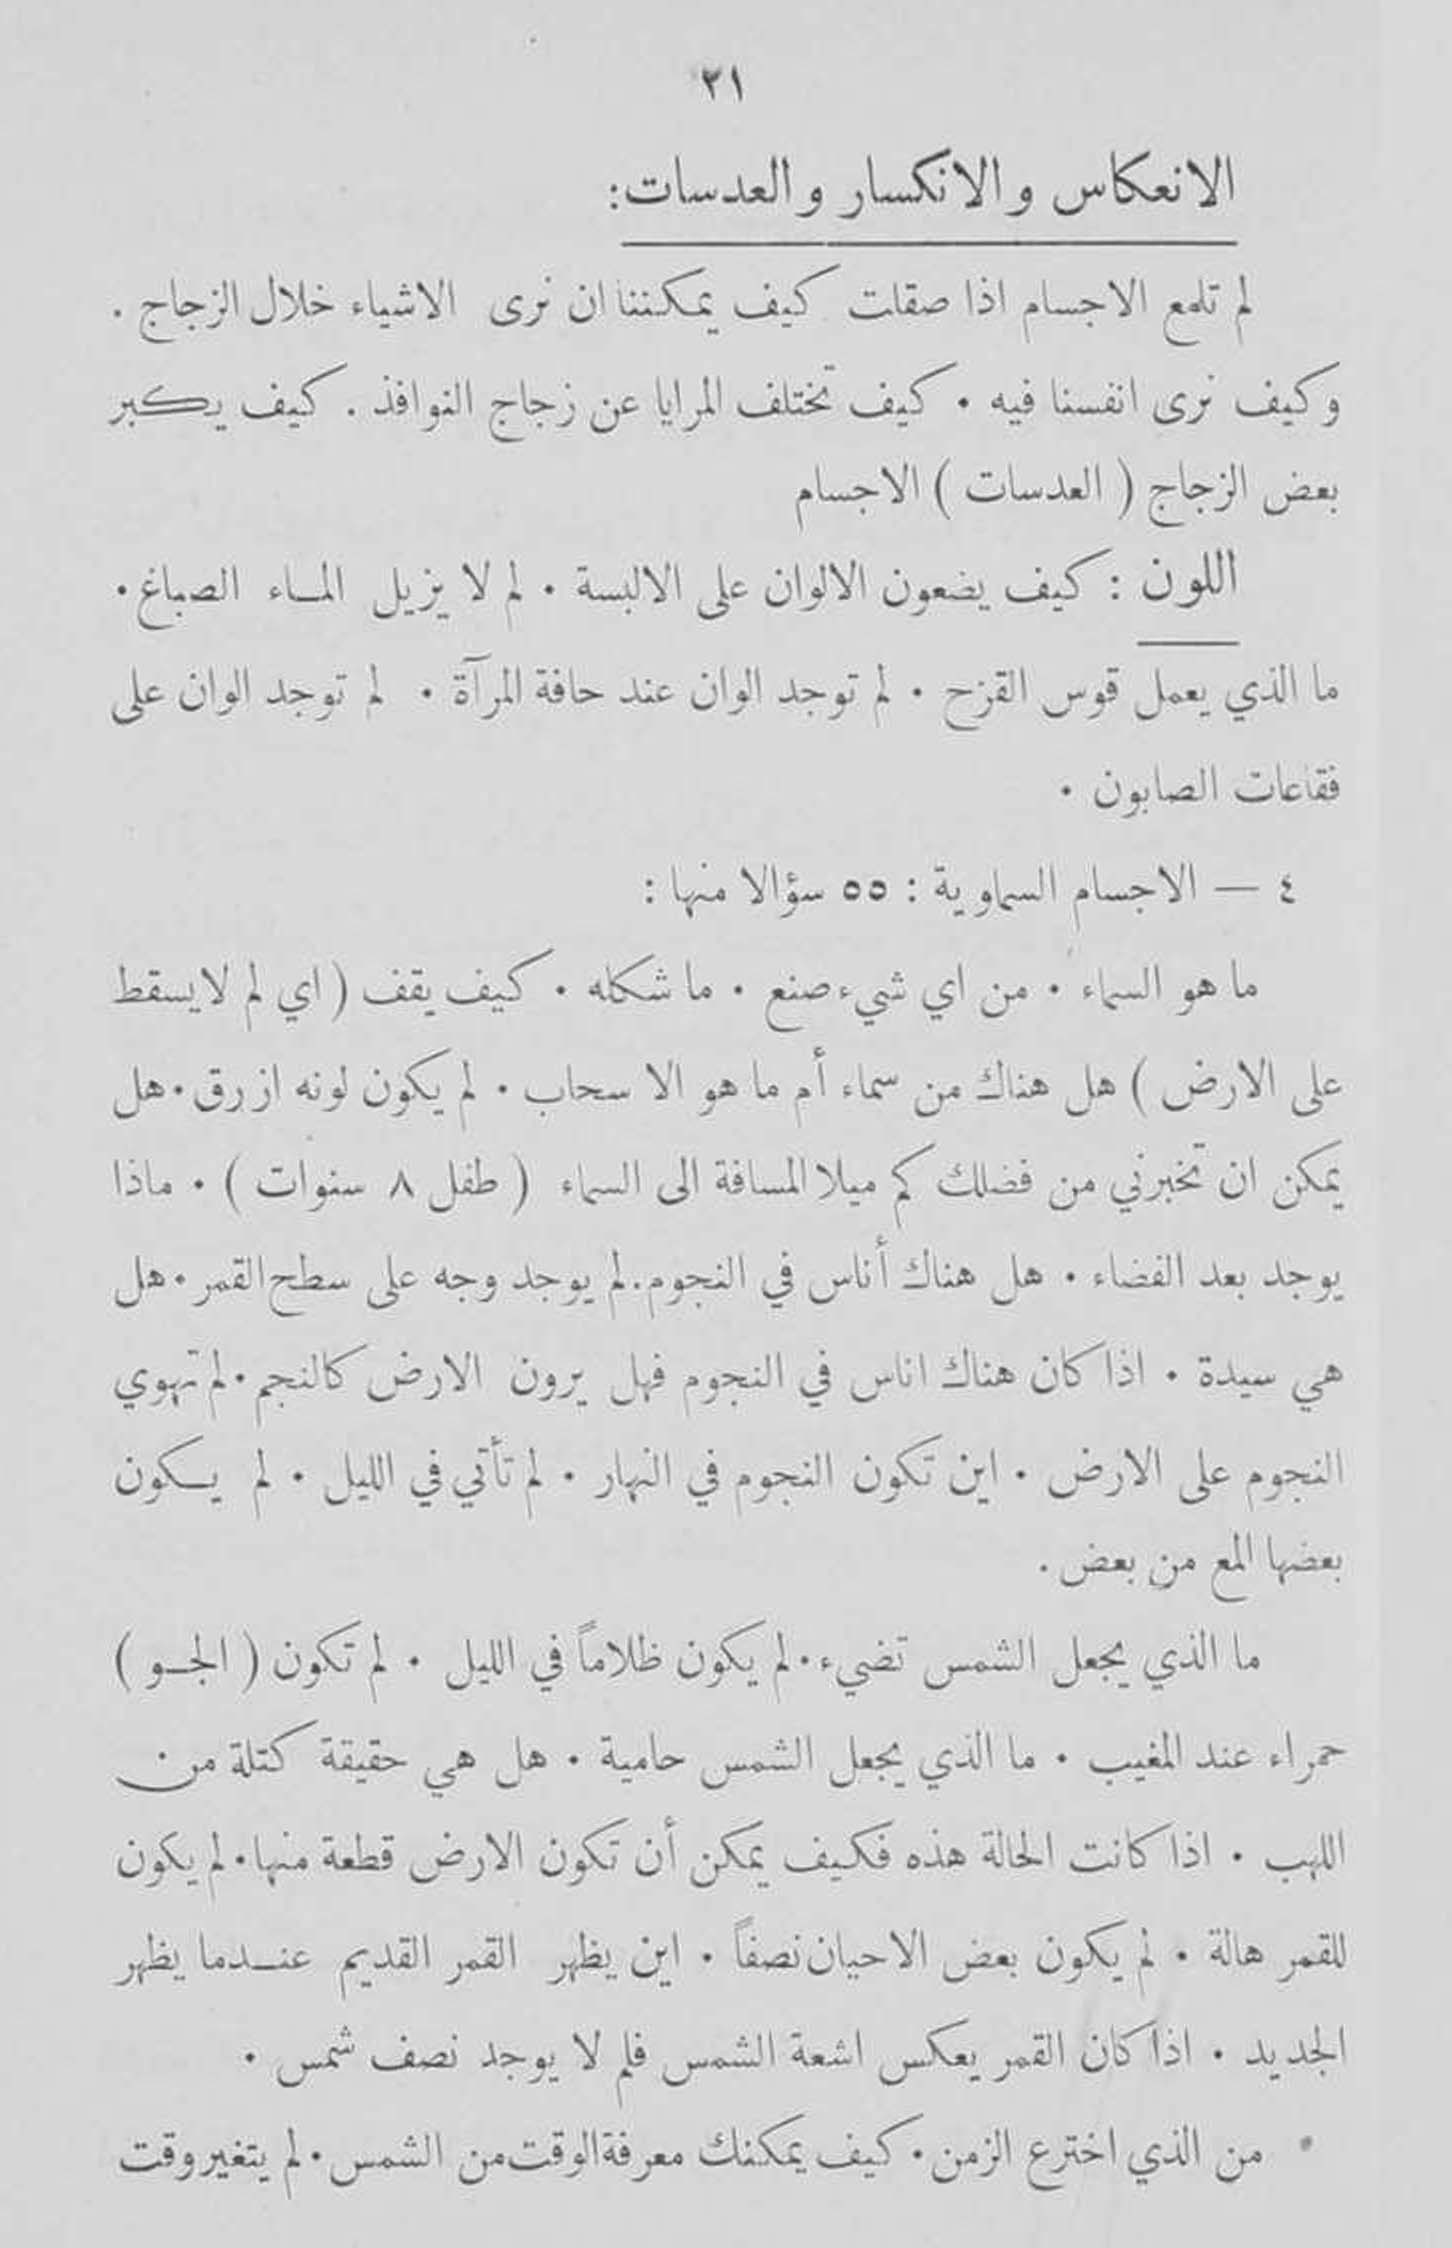 ٢١
الانعكاس والانكسار والعدسات:
لم تلمع الاجسام اذا صقلت كيف يمكننا ان نرى الاشياء خلال الزجاج .
وكيف نرى انفسنا فيه . كيف تختلف المرايا عن زجاج النوافذ . كيف يكبر
بعض الزجاج ( العدسات ) الاجسام
اللون : كيف يضعون الالوان على الالبسة . لم لا يزيل الماء الصباغ .
ما الذي يعمل قوس القزح . لم توجد الوان عند حافة المرآة . لم توجد الوان على
فقاعات الصابون .
٤ — الاجسام السماوية : ٥٥ سؤالا منها :
ما هو السماء . من اي شيء صنع . ما شكله . كيف يقف ( اي لم لا يسقط
على الارض ) هل هناك من سماء أم ما هو الا سحاب . لم يكون لونه ازرق . هل
يمكن ان تخبرني من فضلك كم ميلا المسافة الى السماء ( طفل ٨ سنوات ) . ماذا
يوجد بعد الفضاء . هل هناك أناس في النجوم . لم يوجد وجه على سطح القمر . هل
هي سيدة . اذا كان هناك اناس في النجوم فهل يرون الارض كالنجم . لم تهوي
النجوم على الارض . اين تكون النجوم في النهار . لم تأتي في الليل . لم يكون
بعضها المع من بعض .
ما الذي يجعل الشمس تضيء . لم يكون ظلاماً في الليل . لم تكون ( الجو )
حمراء عند المغيب . ما الذي يجعل الشمس حامية . هل هي حقيقة كتلة من
اللهب . اذا كانت الحالة هذه فكيف يمكن أن تكون الارض قطعة منها . لم يكون
للقمر هالة . لم يكون بعض الاحيان نصفاً . اين يظهر القمر القديم عندما يظهر
الجديد . اذا كان القمر يعكس اشعة الشمس فلم لا يوجد نصف شمس .
من الذي اخترع الزمن . كيف يمكنك معرفة الوقت من الشمس . لم يتغير وقت